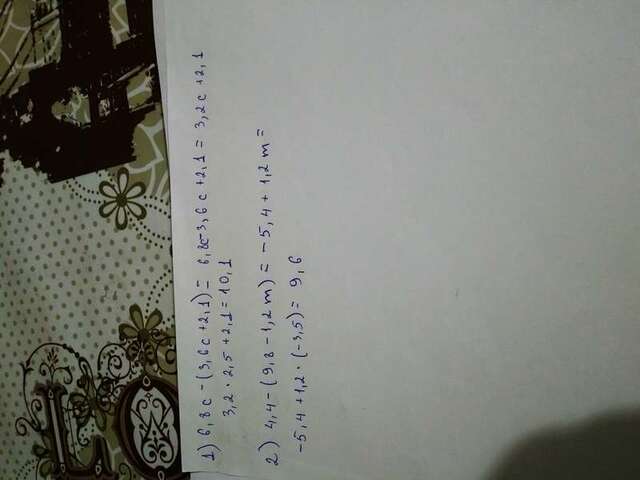 1) 6,8c - (3,6c + 2,1) = 6,8c - 3,6c + 2,1 = 3,2c + 2,1
3,2 · 2,5 + 2,1 = 10,1
2) 4,4 - (9,8 - 1,2m) = -5,4 + 1,2m =
-5,4 + 1,2 · (-3,5) = 9,6